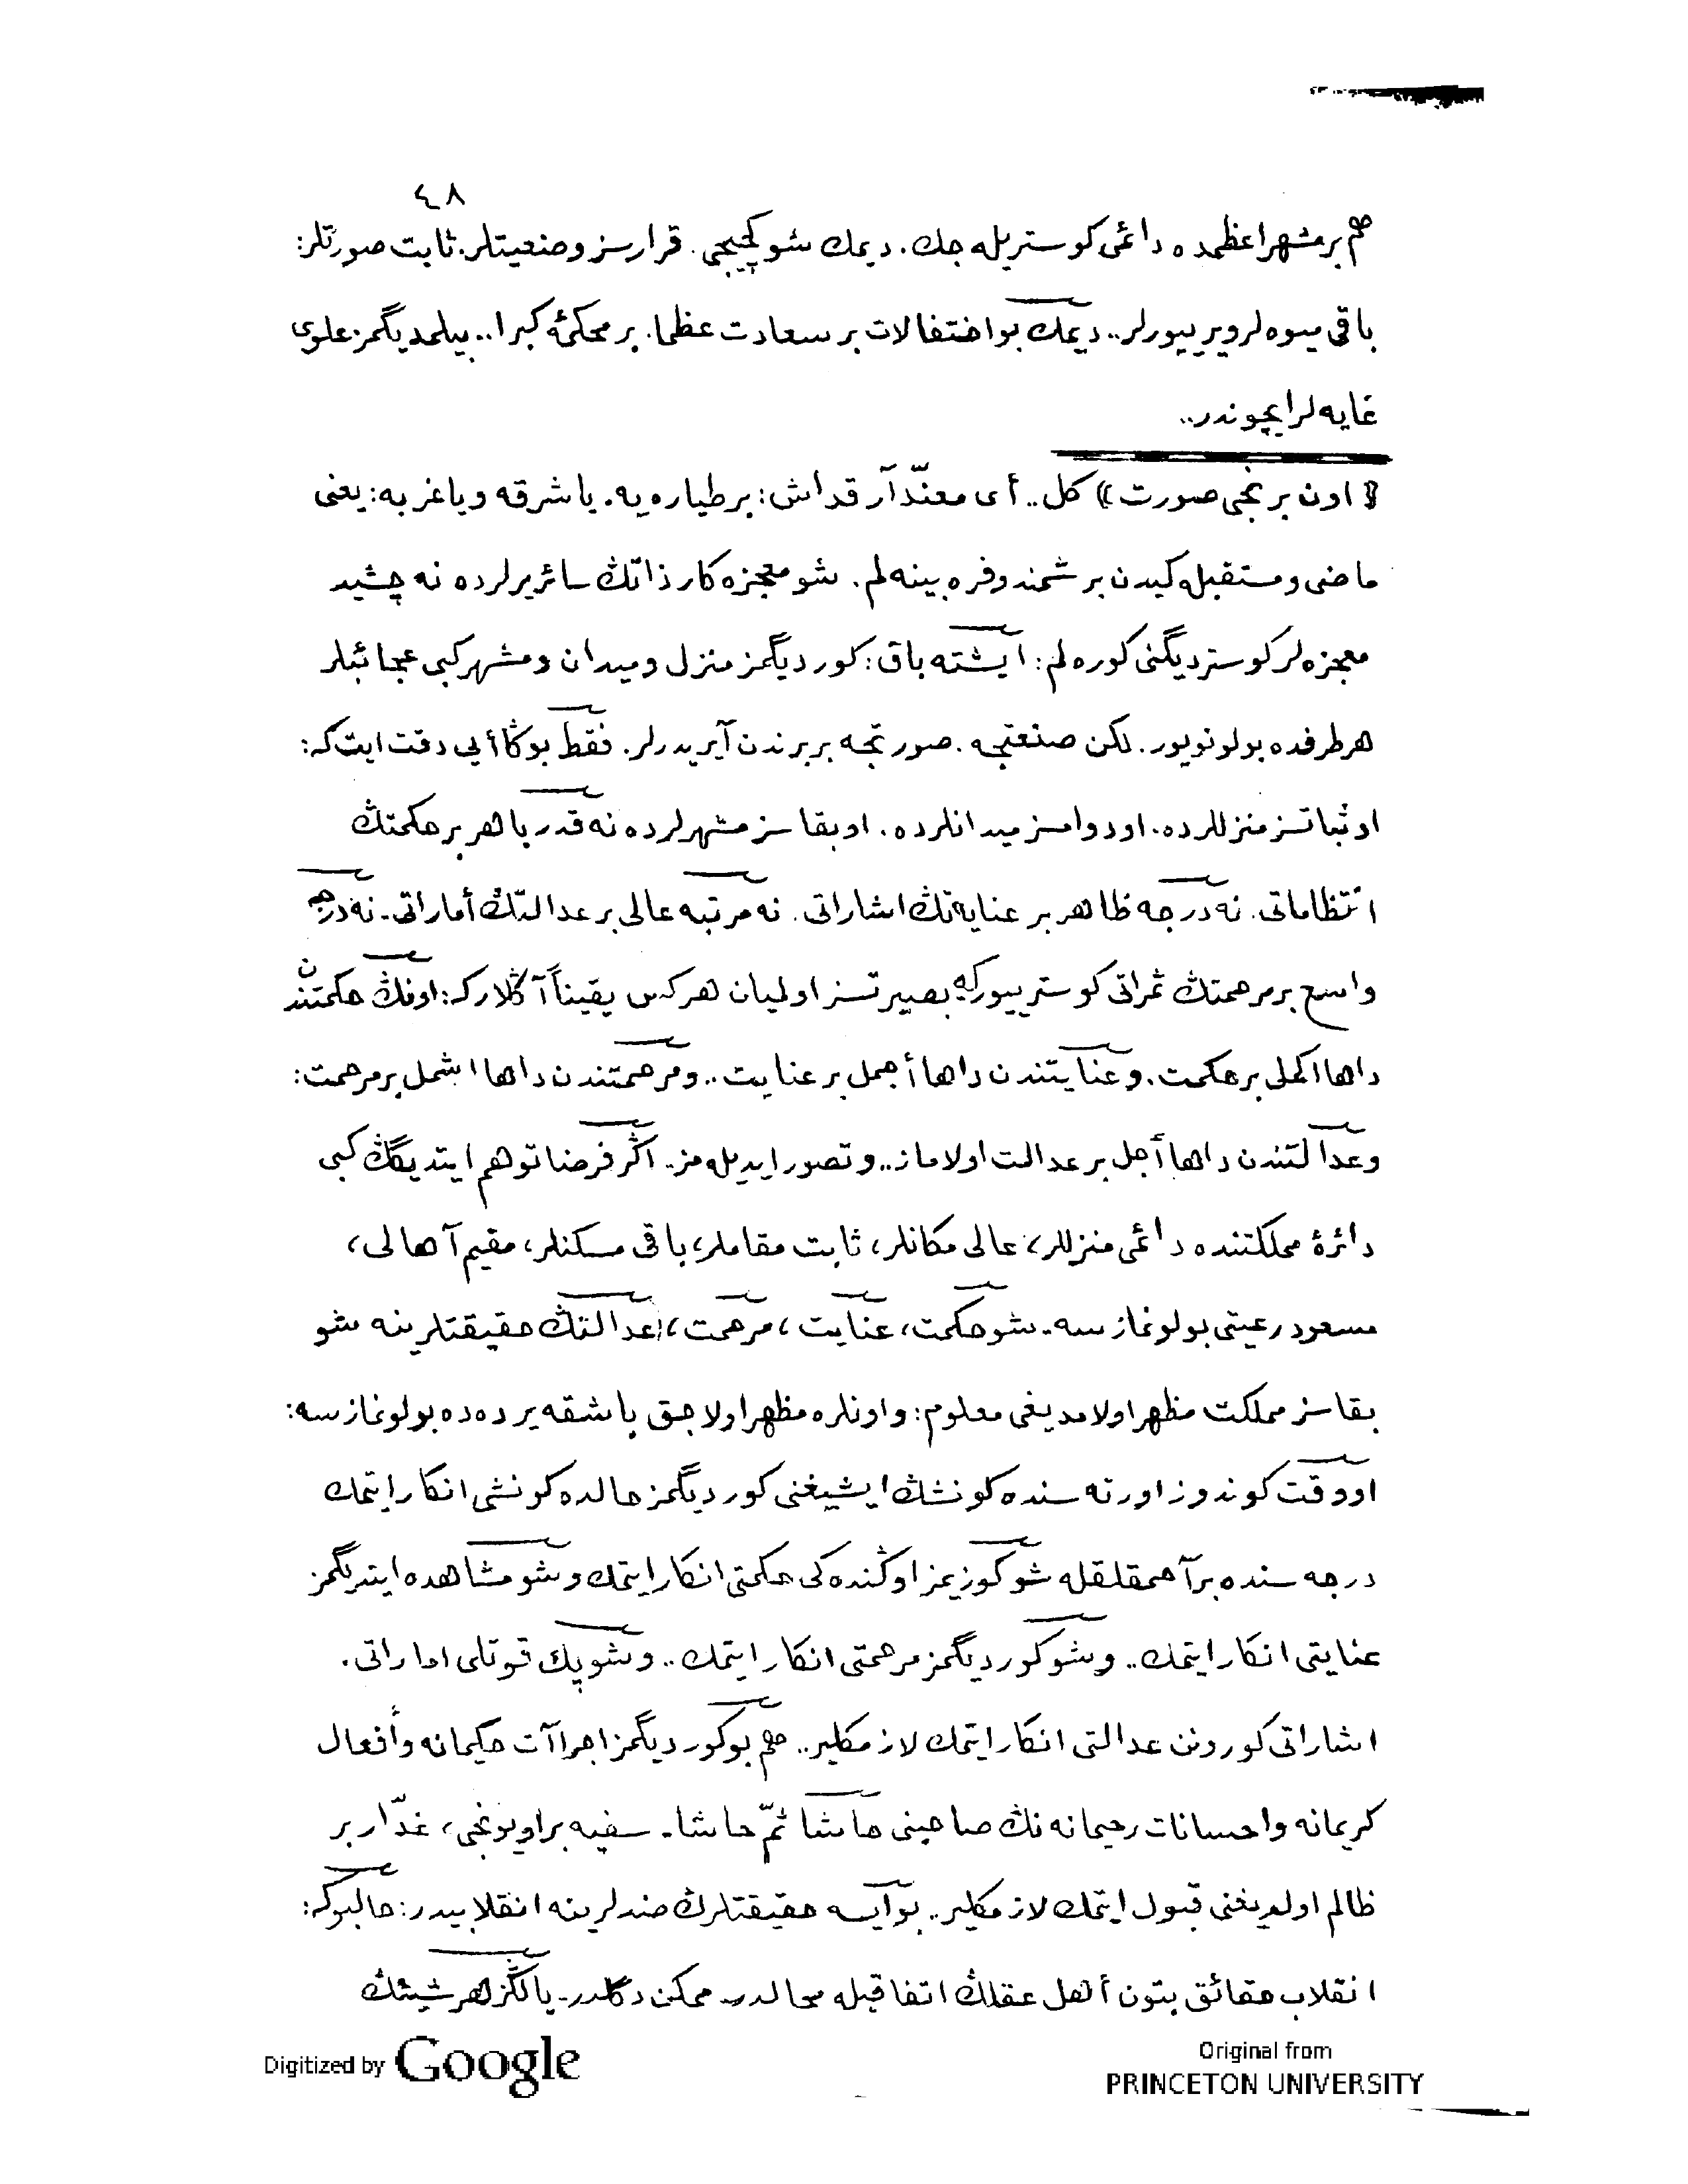 ٤٨
هم بر مشهر اعظمده دائمی كوستریله‌جك. دیمك شو كچیجی. قرارسز وضعیتلر. ثابت صورتلر:
باقی میوه‌لر ویرییورلر.. دیمك بو اختفالات بر سعادت عظما. بر محكمۀ كبرا.. بیلمدیگمز علوی
غایه‌لر ایچوندر..
﴿ اون برنجی صورت ﴾ كل.. أی معنّد آرقداش: بر طیاره‌یه. یا شرقه ویا غربه: یعنی
ماضی ومستقبله كیدن بر شمندوفره بینه‌لم. شو معجزه‌كار ذاتڭ سائر یرلرده نه چشید
معجزه‌لر كوستردیگنی كوره‌لم: ایشته باق: كوردیگمز منزل ومیدان ومشهر كبی عجائبلر
هر طرفده بولونویور. لكن صنعتجه. صورتجه بربرندن آیریدرلر. فقط بوڭا أیی دقت ایت كه:
او ثباتسز منزللرده. او دوامسز میدانلرده. او بقاسز مشهرلرده نه قدر باهر بر حكمتڭ
انتظاماتی. نه درجه ظاهر بر عنایه‌تڭ اشاراتی. نه مرتبه عالی بر عدالتڭ أماراتی. نه درجه
واسع بر مرحمتڭ ثمراتی كوسترییور كه بصیرتسز اولمیان هركس یقیناً آڭلار كه: اونڭ حكمتندن
داها اكمل بر حكمت. وعنایتندن داها أجمل بر عنایت.. ومرحمتندن داها اشمل بر مرحمت:
وعدالتندن داها أجل بر عدالت اولاماز.. وتصور ایدیله‌مز. اڭر فرضا توهم ایتدیگڭ كبی
دائرۀ مملكتنده دائمی منزللر، عالی مكانلر، ثابت مقاملر، باقی مسكنلر، مقیم آهالی،
مسعود رعیتی بولونمازسه. شو حكمت، عنایت، مرحمت، عدالتڭ حقیقتلرینه شو
بقاسز مملكت مظهر اولامدیغی معلوم: واونلره مظهر اولاجق باشقه یرده‌ده بولونمازسه:
او وقت كوندوز اورته‌سنده كونشڭ ایشیغنی كوردیگمز حالده كونشی انكار ایتمك
درجه‌سنده بر آحمقلقله شو كوزیمز اوڭنده‌كی حكمتی انكار ایتمك وشو مشاهده ایتدیگمز
عنایتی انكار ایتمك.. وشو كوردیگمز مرحمتی انكار ایتمك.. وشو پك قوتلی اماراتی.
اشاراتی كورونن عدالتی انكار ایتمك لازمكلیر.. هم بو كوردیگمز اجراآت حكیمانه وأفعال
كریمانه واحسانات رحیمانه‌نڭ صاحبنی حاشا ثمّ حاشا. سفیه بر اویونجی، غدّار بر
ظالم اولدیغنی قبول ایتمك لازمكلیر.. بو آیسه حقیقتلرڭ ضدلرینه انقلابیدر: حالبوكه:
انقلاب حقائق بتون أهل عقلڭ اتفاقیله محالدر. ممكن دگلدر. یالڭز هر شیئڭ
Digitized by Google
Original from
PRINCETON UNIVERSITY